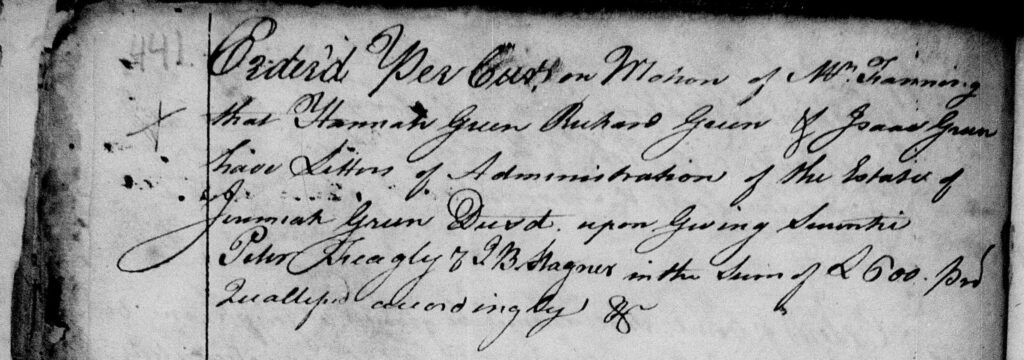 441.
Order'd Per Curi, on Motion of Mr. Fanning
that Hannah Green Richard Green & Isaac Green
have Letters of Administration of the Estate of
Jeremiah Green Decsd. upon Giving
Peter & in the Sum of £600.
accordingly &